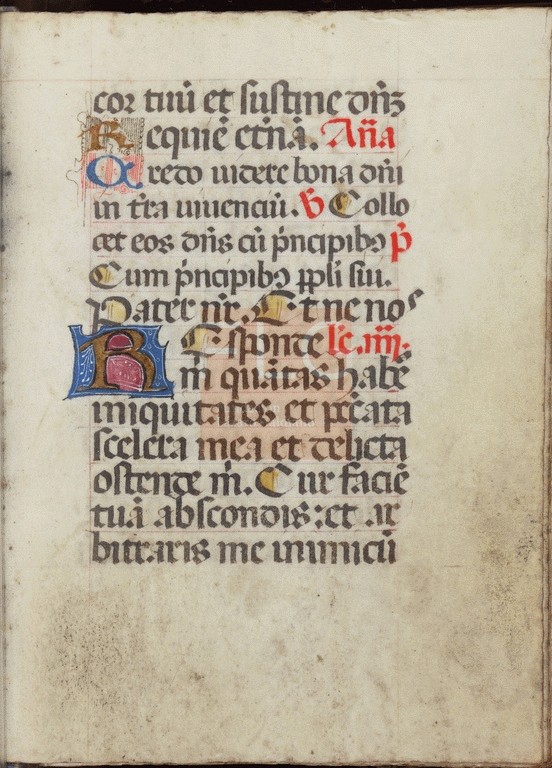 cor tuū et sustine dn̄ʒ
Requiē etn̄ā. An̄a
Credo videre bona dn̄i
in tr̄a viuenciū. ℣ Collo
cet eos dn̄s cū p̄ncipibꝫ ꝶ
Cum p̄ncipibꝫ ppl̄i sui.
Pater nr̄. Et ne nos
Responde lc̄. iiij.
m quātas habē
iniquitates et pc̄cata
scelera mea et delicta
ostende m̄. Cur faciē
tuā abscondis: et ar
bitraris me inimicū